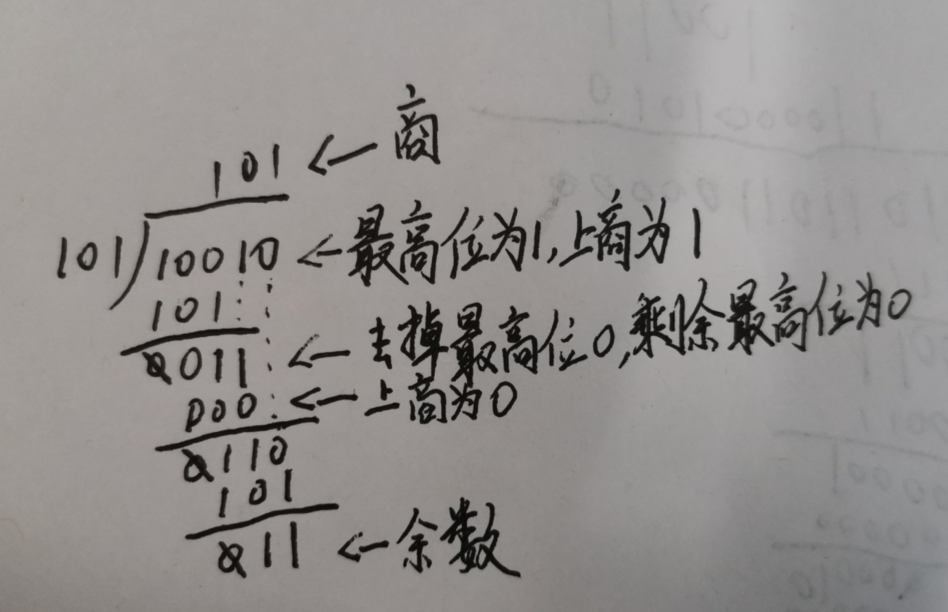 101 ← 商
101)10010 ← 最高位为1,上商为1
101
0011 ← 去掉最高位0,剩余最高位为0
000 ← 上商为0
0110
101
011 ← 余数